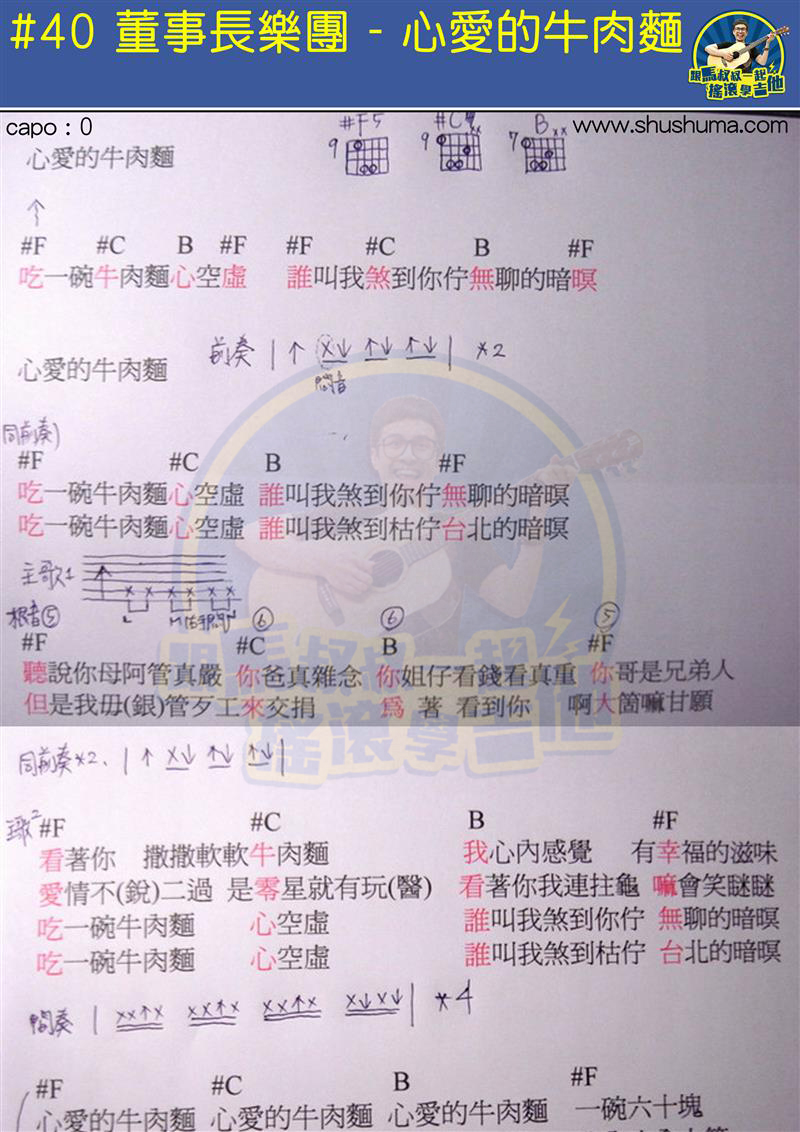 #40 董事長樂團 - 心愛的牛肉麵
跟馬叔叔一起
搖滾學吉他
capo : 0
www.shushuma.com
#F5 #C B
9 9 7
心愛的牛肉麵
#F #C B #F #F #C B #F
吃一碗牛肉麵心空虛 誰叫我煞到你佇無聊的暗暝
心愛的牛肉麵
前奏 | ↑ x↓ ↑↓ ↑↓ | *2
悶音
同前奏
#F #C B #F
吃一碗牛肉麵心空虛 誰叫我煞到你佇無聊的暗暝
吃一碗牛肉麵心空虛 誰叫我煞到枯佇台北的暗暝
主歌1
根音⑤ ⑥ ⑥ ⑤
#F #C B #F
聽說你母阿管真嚴 你爸真雜念 你姐仔看錢看真重 你哥是兄弟人
但是我毋(銀)管歹工來交捐 為 著 看到你 啊大箇嘛甘願
跟馬叔叔一起
搖滾學吉他
同前奏*2. | ↑ x↓ ↑↓ ↑↓ |
主歌2
#F #C B #F
看著你 撒撒軟軟牛肉麵 我心內感覺 有幸福的滋味
愛情不(銳)二過 是零星就有玩(醫) 看著你我連拄龜 嘛會笑瞇瞇
吃一碗牛肉麵 心空虛 誰叫我煞到你佇 無聊的暗暝
吃一碗牛肉麵 心空虛 誰叫我煞到枯佇 台北的暗暝
間奏 | xx↑x xx↑x xx↑x x↓x↓ | *4
#F #C B #F
心愛的牛肉麵 心愛的牛肉麵 心愛的牛肉麵 一碗六十塊